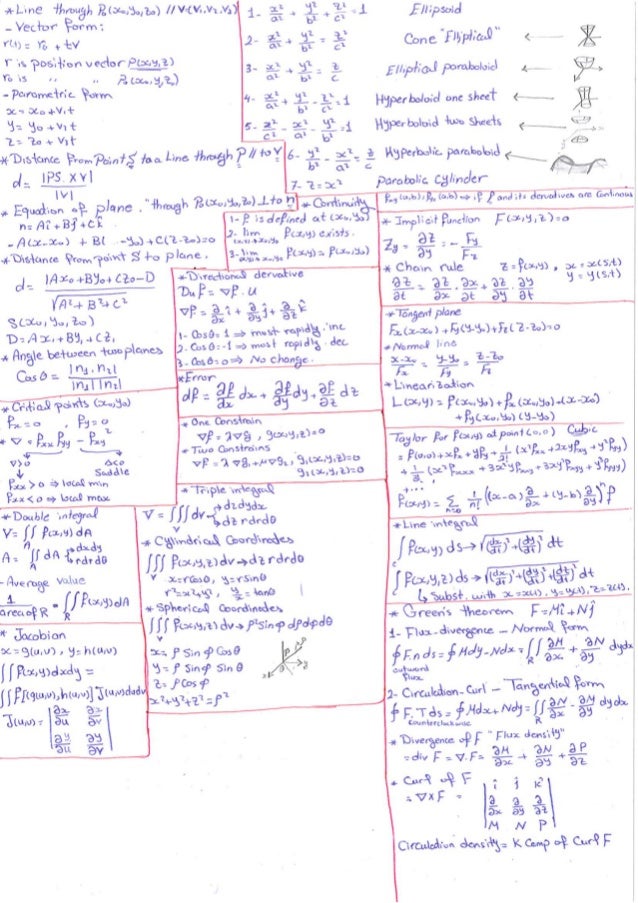 * Line through P₀(x₀,y₀,z₀) // V<V₁,V₂,V₃>
- Vector form:
r(t) = r₀ + tv
r is position vector P(x,y,z)
r₀ is " " P₀(x₀,y,z₀)
- Parametric form
x = x₀ + V₁t
y = y₀ + V₂t
z = z₀ + V₃t
* Distance from Point S to a Line through P // to V
d = |PS × V| / |V|
* Equation of plane. "through P₀(x₀,y₀,z₀) ⊥ to n
n = Ai + Bj + Ck
- A(x-x₀) + B( -y₀) + C(z-z₀) = 0
* Distance from point S to plane.
d = |Ax₀ + By₀ + Cz₀ - D| / √(A² + B² + C²)
S(x₀,y₀,z₀)
D = Ax₁ + By₁ + Cz₁
* Angle between two planes
Cos θ = |n₁ . n₂| / |n₁||n₂|
* Critial points (x₀,y₀)
fx = 0 , fy = 0
* ∇ = fxx fyy - fxy²
∇>0 Δ<0
Saddle
fxx > 0 ⇒ local min
fxx < 0 ⇒ local max
* Double integral
V = ∬ f(x,y) dA
R
A = ∬ dA → dxdy
→ rdrdθ
R
- Average value
1 / area of R * ∬ f(x,y) dA
* Jacobian
x = g(u,v) , y = h(u,v)
∬ f(x,y) dxdy =
∬ f[(g(u,v), h(u,v)] J(u,v) dudv
J(u,v) = | ∂x/∂u ∂x/∂v |
| ∂y/∂u ∂y/∂v |
1- x²/a² + y²/b² + z²/c² = 1 Ellipsoid
2- x²/a² + y²/b² = z²/c² Cone "Elliptical" ←
3- x²/a² + y²/b² = z/c Elliptical paraboloid ←
4- x²/a² + y²/b² - z²/c² = 1 Hyperboloid one sheet ←
5- z²/c² - x²/a² - y²/b² = 1 Hyperboloid two sheets ←
6- y²/b² - x²/a² = z/c Hyperbolic paraboloid ←
7- z = x² Parabolic Cylinder
* Continuity
1- f is defined at (x₀,y₀)
2- lim f(x,y) exists.
(x,y)→x₀,y₀
3- lim f(x,y) = f(x₀,y₀)
(x,y)→x₀,y₀
* Directional derivative
Du f = ∇f . u
∇f = ∂/∂x i + ∂/∂y j + ∂/∂z k
1- Cosθ = 1 ⇒ most rapidly. inc
2- Cosθ = -1 ⇒ most rapidly. dec
3- Cosθ = 0 ⇒ No change.
* Error
df = ∂f/∂x dx + ∂f/∂y dy + ∂f/∂z dz
* One Constrain
∇f = λ∇g , g(x,y,z) = 0
* Two Constrains
∇f = λ∇g₁ + μ∇g₂ , g₁(x,y,z) = 0
g₂(x,y,z) = 0
* Triple integral
V = ∭ dv → dzdydx
→ dz rdrdθ
* Cylindrical Coordinates
∭ f(x,y,z) dv → dz rdrdθ
V
x = rcosθ , y = rsinθ
r² = x² + y² , y/x = tanθ
* Spherical Coordinates
∭ f(x,y,z) dv → ρ² sinφ dρdφdθ
V
x = ρ Sinφ Cosθ
y = ρ Sinφ Sinθ
z = ρ Cosφ
x² + y² + z² = ρ²
fxy(a,b) = fyx(a,b) ⇒ if f and its derivatives are Continous
* Implicit function F(x,y,z) = 0
Zy = ∂z/∂y = - Fy/Fz
* Chain rule z = f(x,y) , x = x(s,t)
y = y(s,t)
∂z/∂t = ∂z/∂x . ∂x/∂t + ∂z/∂y . ∂y/∂t
* Tangent plane
Fx(x-x₀) + Fy(y-y₀) + Fz(z-z₀) = 0
* Normal line
x-x₀/Fx = y-y₀/Fy = z-z₀/Fz
* Linearization
L(x,y) = f(x₀,y₀) + fx(x₀,y₀)(x-x₀)
+ fy(x₀,y₀)(y-y₀)
Taylor for f(x,y) at point (0,0) Cubic
= f(0,0) + xfx + yfy + 1/2! (x²fxx + 2xyfxy + y²fyy)
+ 1/3! (x³fxxx + 3x²yfxxy + 3xy²fxyy + y³fyyy)
+ ...
f(x,y) = Σ n=0 1/n! ((x-a) ∂/∂x + (y-b) ∂/∂y)ⁿ f
* Line integral
∫ f(x,y) ds → √((dx/dt)² + (dy/dt)²) dt
∫ f(x,y,z) ds → √((dx/dt)² + (dy/dt)² + (dz/dt)²) dt
↳ Subst. with x = x(t), y = y(t), z = z(t).
* Green's theorem F = Mi + Nj
1- Flux-divergence - Normal form
∮ F.n ds = ∮ Mdy - Ndx = ∬ ∂M/∂x + ∂N/∂y dydx
outward flux R
2- Circulation-Curl - Tangential form
∮ F.T ds = ∮ Mdx + Ndy = ∬ ∂N/∂x - ∂M/∂y dydx
counterclockwise R
* Divergence of F "Flux density"
= div F = ∇.F = ∂M/∂x + ∂N/∂y + ∂P/∂z
* Curl of F
= ∇×F = | i j k |
| ∂/∂x ∂/∂y ∂/∂z |
| M N P |
Circulation density = K Comp of Curl F